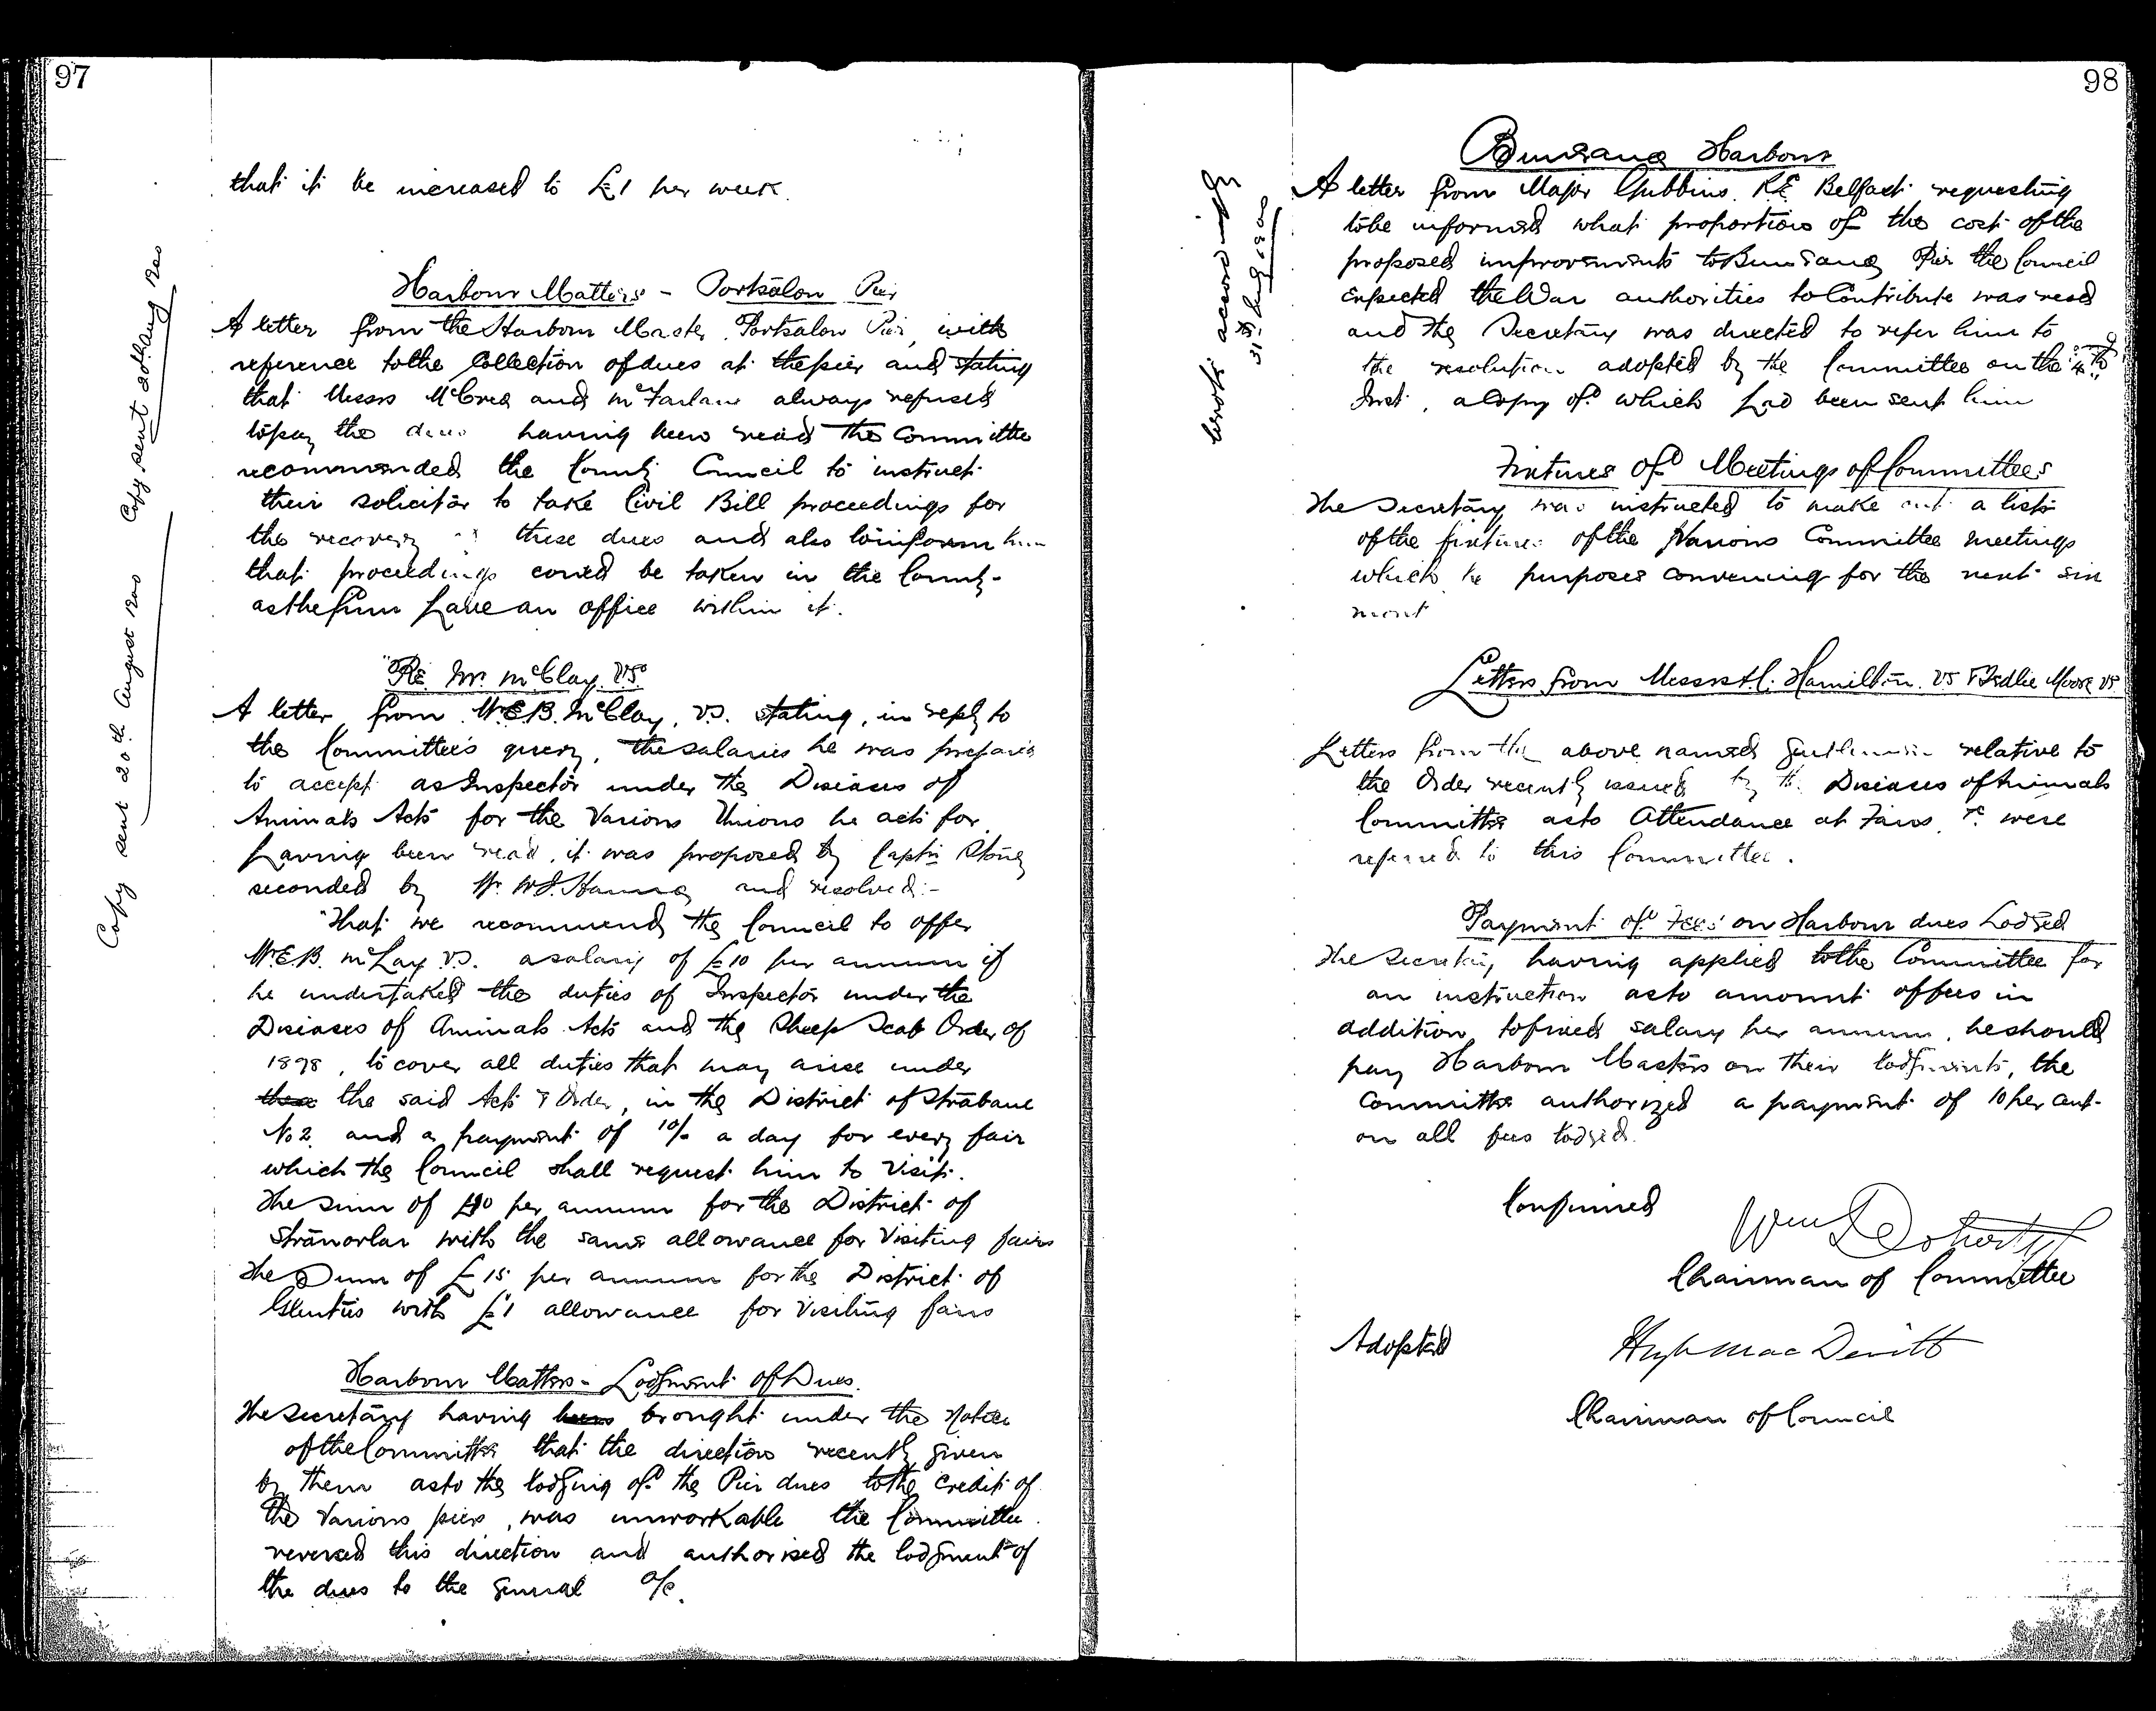 97
that it be increased to £1 per week.
Harbour Matters - Portsalon Pier
A letter from the Harbour Master Portsalon Pier, with
reference to the Collection of dues at the pier and stating
that Messrs McCrea and McFarlane always refused
to pay the dues having been read the Committee
recommended the County Council to instruct
their solicitor to take Civil Bill proceedings for
the recovery of these dues and also to inform him
that proceedings could be taken in the County
as the firm have an office within it.
Copy sent 20th Aug 1900
"Re Mr. McClay. V.S."
A letter from W.E.B. McClay, V.S. stating, in reply to
the Committee's query, the salaries he was prepared
to accept as Inspector under the Diseases of
Animals Acts for the Various Unions he acts for
having been read, it was proposed by Captn Stoney
seconded by Mr. W.J. Hanna and resolved:-
"That we recommend the Council to offer
W.E.B. McLay V.S. a salary of £10 per annum if
he undertakes the duties of Inspector under the
Diseases of Animals Acts and the Sheep Scab Order of
1898, to cover all duties that may arise under
the said Acts & Order, in the District of Strabane
No 2 and a payment of 10/- a day for every fair
which the Council shall request him to visit.
The sum of £10 per annum for the District of
Stranorlar with the same allowance for Visiting fairs
The Sum of £15 per annum for the District of
Glenties with £1 allowance for Visiting fairs
Copy sent 20th August 1900
Harbour Matters - Lodgment of Dues.
The Secretary having been brought under the Notice
of the Committee that the direction recently given
by them as to the lodging of the Pier dues to the Credit of
the Various piers, was unworkable the Committee
reversed this direction and authorised the lodgment of
the dues to the general a/c.
98
Buncrana Harbour
A letter from Major Gubbins. R.E. Belfast requesting
to be informed what proportion of the cost of the
proposed improvements to Buncrana Pier the Council
expected the War authorities to Contribute was read
and the Secretary was directed to refer him to
the resolution adopted by the Committee on the
Inst, a Copy of which had been sent him
Wrote accordingly
31st Aug 1900
Fixtures of Meetings of Committees
The Secretary was instructed to make out a list
of the fixtures of the Various Committee meetings
which he purposes convening for the next six
mont
Letters from Messrs H. Hamilton. V.S. & Bedlie Moore V.S.
Letters from the above named Gentlemen relative to
the Order recently issued by the Diseases of Animals
Committee as to Attendance at Fairs &c were
referred to this Committee.
Payment of Fees on Harbour dues Lodged
The Secretary having applied to the Committee for
an instruction as to amount of fees in
addition to fixed salary per annum, he should
pay Harbour Masters on their lodgments, the
Committee authorized a payment of 10 per cent
on all fees lodged.
Confirmed
Wm Doherty
Chairman of Committee
Adopted
Hugh Mac Devitt
Chairman of Council